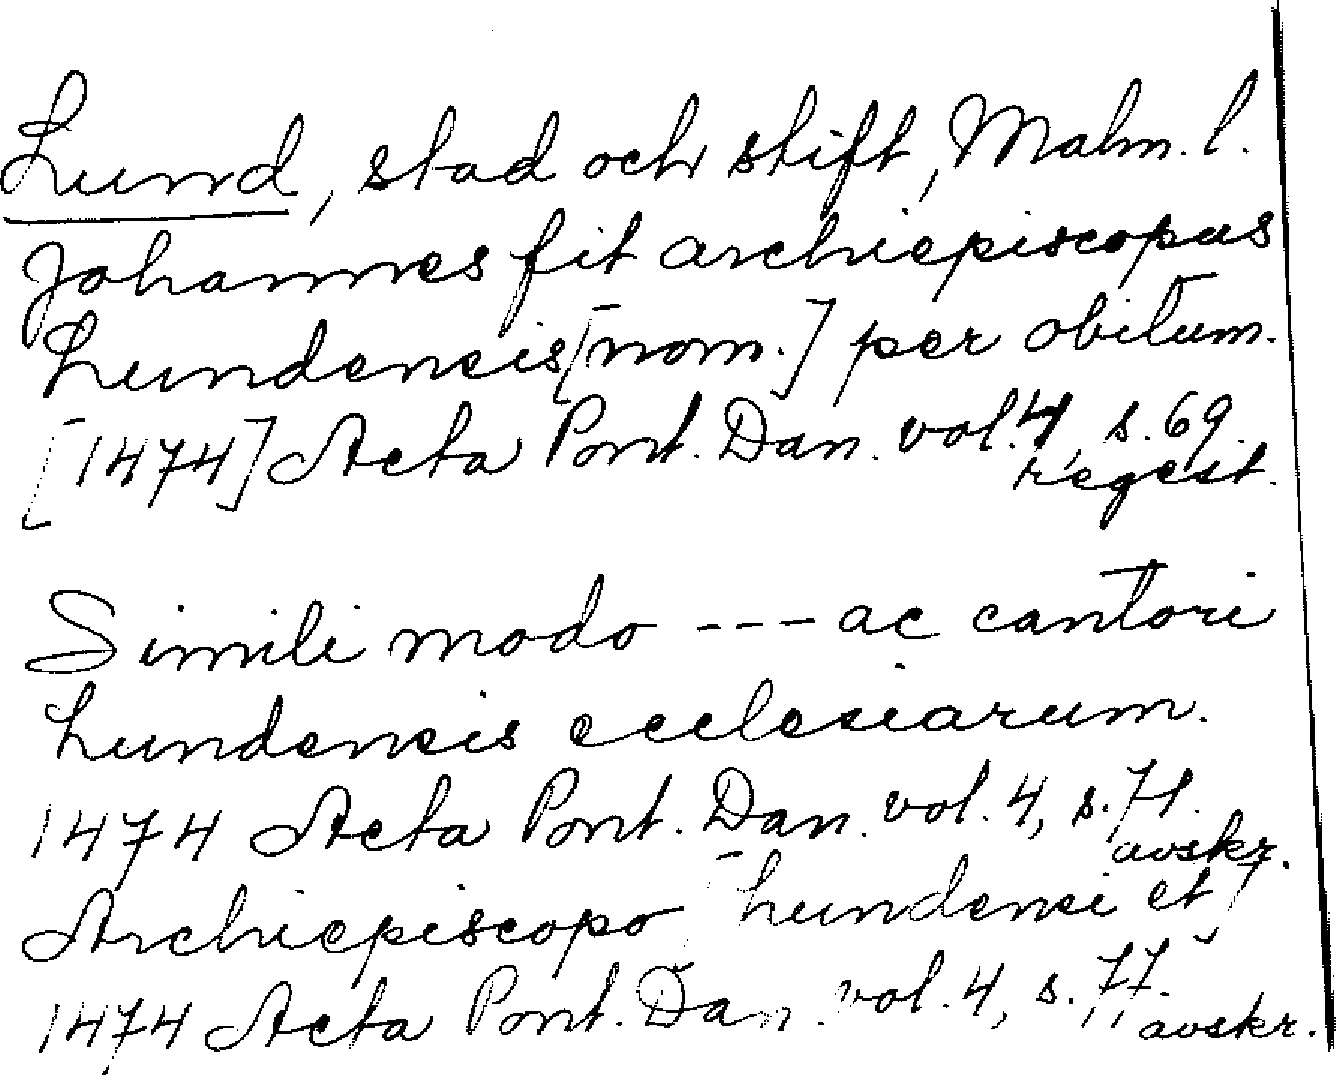 Lund, stad och stift, Malm. l.
Johannes fit archiepiscopus
Lundensis [nom.] per obitum.
[1474] Acta Pont. Dan. vol. 4, s. 69.
regest.
Simili modo --- ac cantori
Lundensis ecclesiarum.
1474 Acta Pont. Dan. vol. 4, s. 71.
avskr.
Archiepiscopo [Lundensi et]
1474 Acta Pont. Dan. vol. 4, s. 77.
avskr.